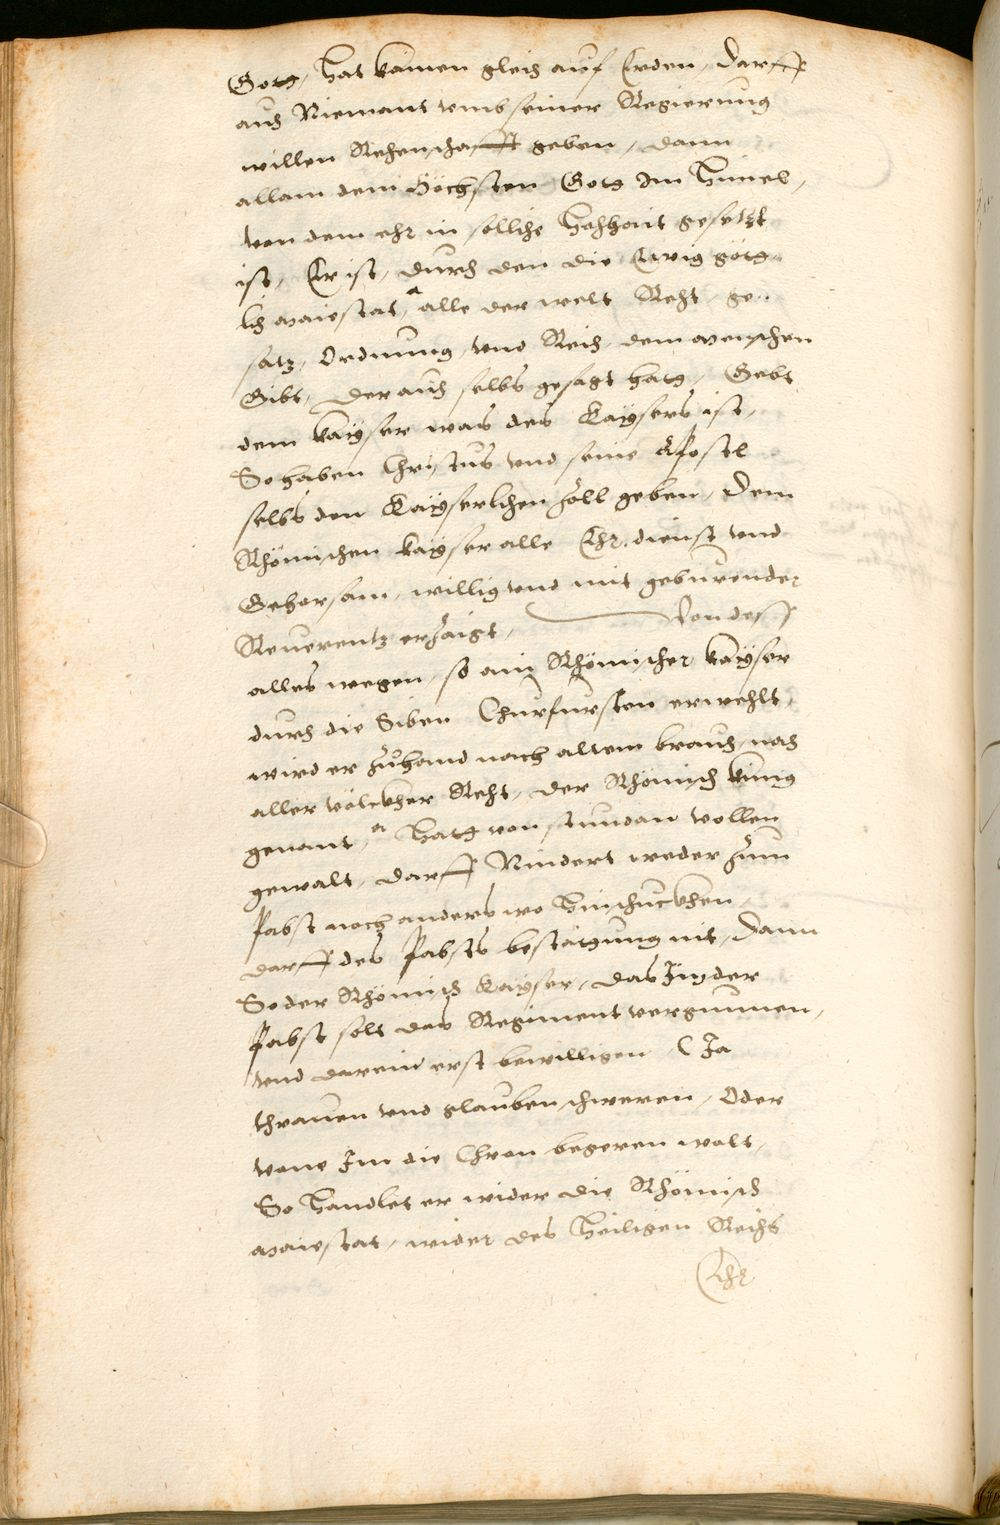 Gotz, hat kainen gleich auf Erden, darff
auch Niemant umb seiner Regierung
willen Rechenschafft geben, dann
allain dem Höchsten Gotz Im Himel,
von dem ehr in solliche Hochhait gesetzt
ist, Er ist, durch den die Ewig götz¬
lich maiestat, alle der welt Recht, ge¬
satz, Ordnung, und Reich, dem menschen
Gibt, der auch selbs gesagt hatz, Gebt
dem kayser was des Kaysers ist,
So haben Christus und seine Apostel
selbs den Kayserlichen zoll geben, dem
Rhömischen kayser alle Ehr, dienst und
Gehorsam, willig und mit geburender
Reverentz erzaigt, Von dess
alles wegen, so ain Rhömischer kayser
durch die Siben Churfursten erwehlt,
wird er zuhand nach altem brauch, nach
aller völckher Recht, der Rhömisch künig
genant, er hatz von stundan vollen
gewalt, darff Nindert weder zum
Pabst noch anders wo hinschickhen
darff des Pabsts bestätgung nit, dann
So der Rhömisch Kayser, das Im der
Pabst solt das Regiment vergunnen,
und darein erst bewilligen (Ja
threuen und glauben schweren, Oder
vone Im die Chron begeren wolt,
So handlet er wider die Rhömisch
maiestat, wider des Heiligen Reichs
Ehr